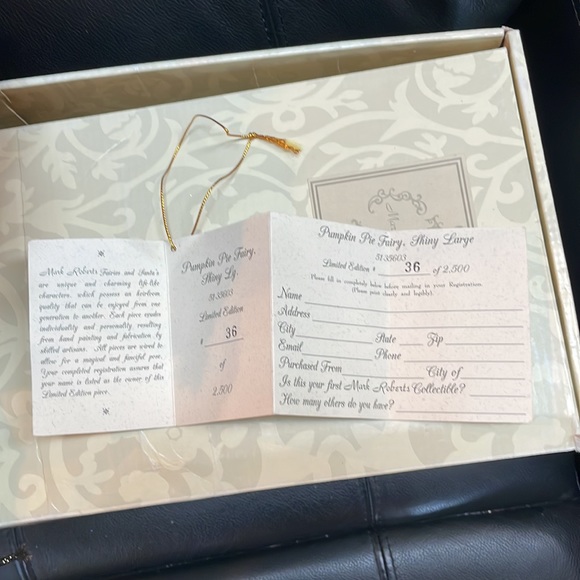 Mark Roberts Fairies and Santa's
are unique and charming life-like
characters, which possess an heirloom
quality that can be enjoyed from one
generation to another. Each piece exudes
individuality and personality resulting
from hand painting and fabrication by
skilled artisans. All pieces are wired to
allow for a magical and fanciful pose.
Your completed registration assures that
your name is listed as the owner of this
Limited Edition piece.
Pumpkin Pie Fairy,
Shiny Lg.
51-35603
Limited Edition
# 36
of
2,500
Pumpkin Pie Fairy, Shiny Large
51-35603
Limited Edition # 36 of 2,500
Please fill in completely below before mailing in your Registration.
(Please print clearly and legibly).
Name
Address
City State Zip
Email Phone
Purchased From City of
Is this your first Mark Roberts Collectible?
How many others do you have?